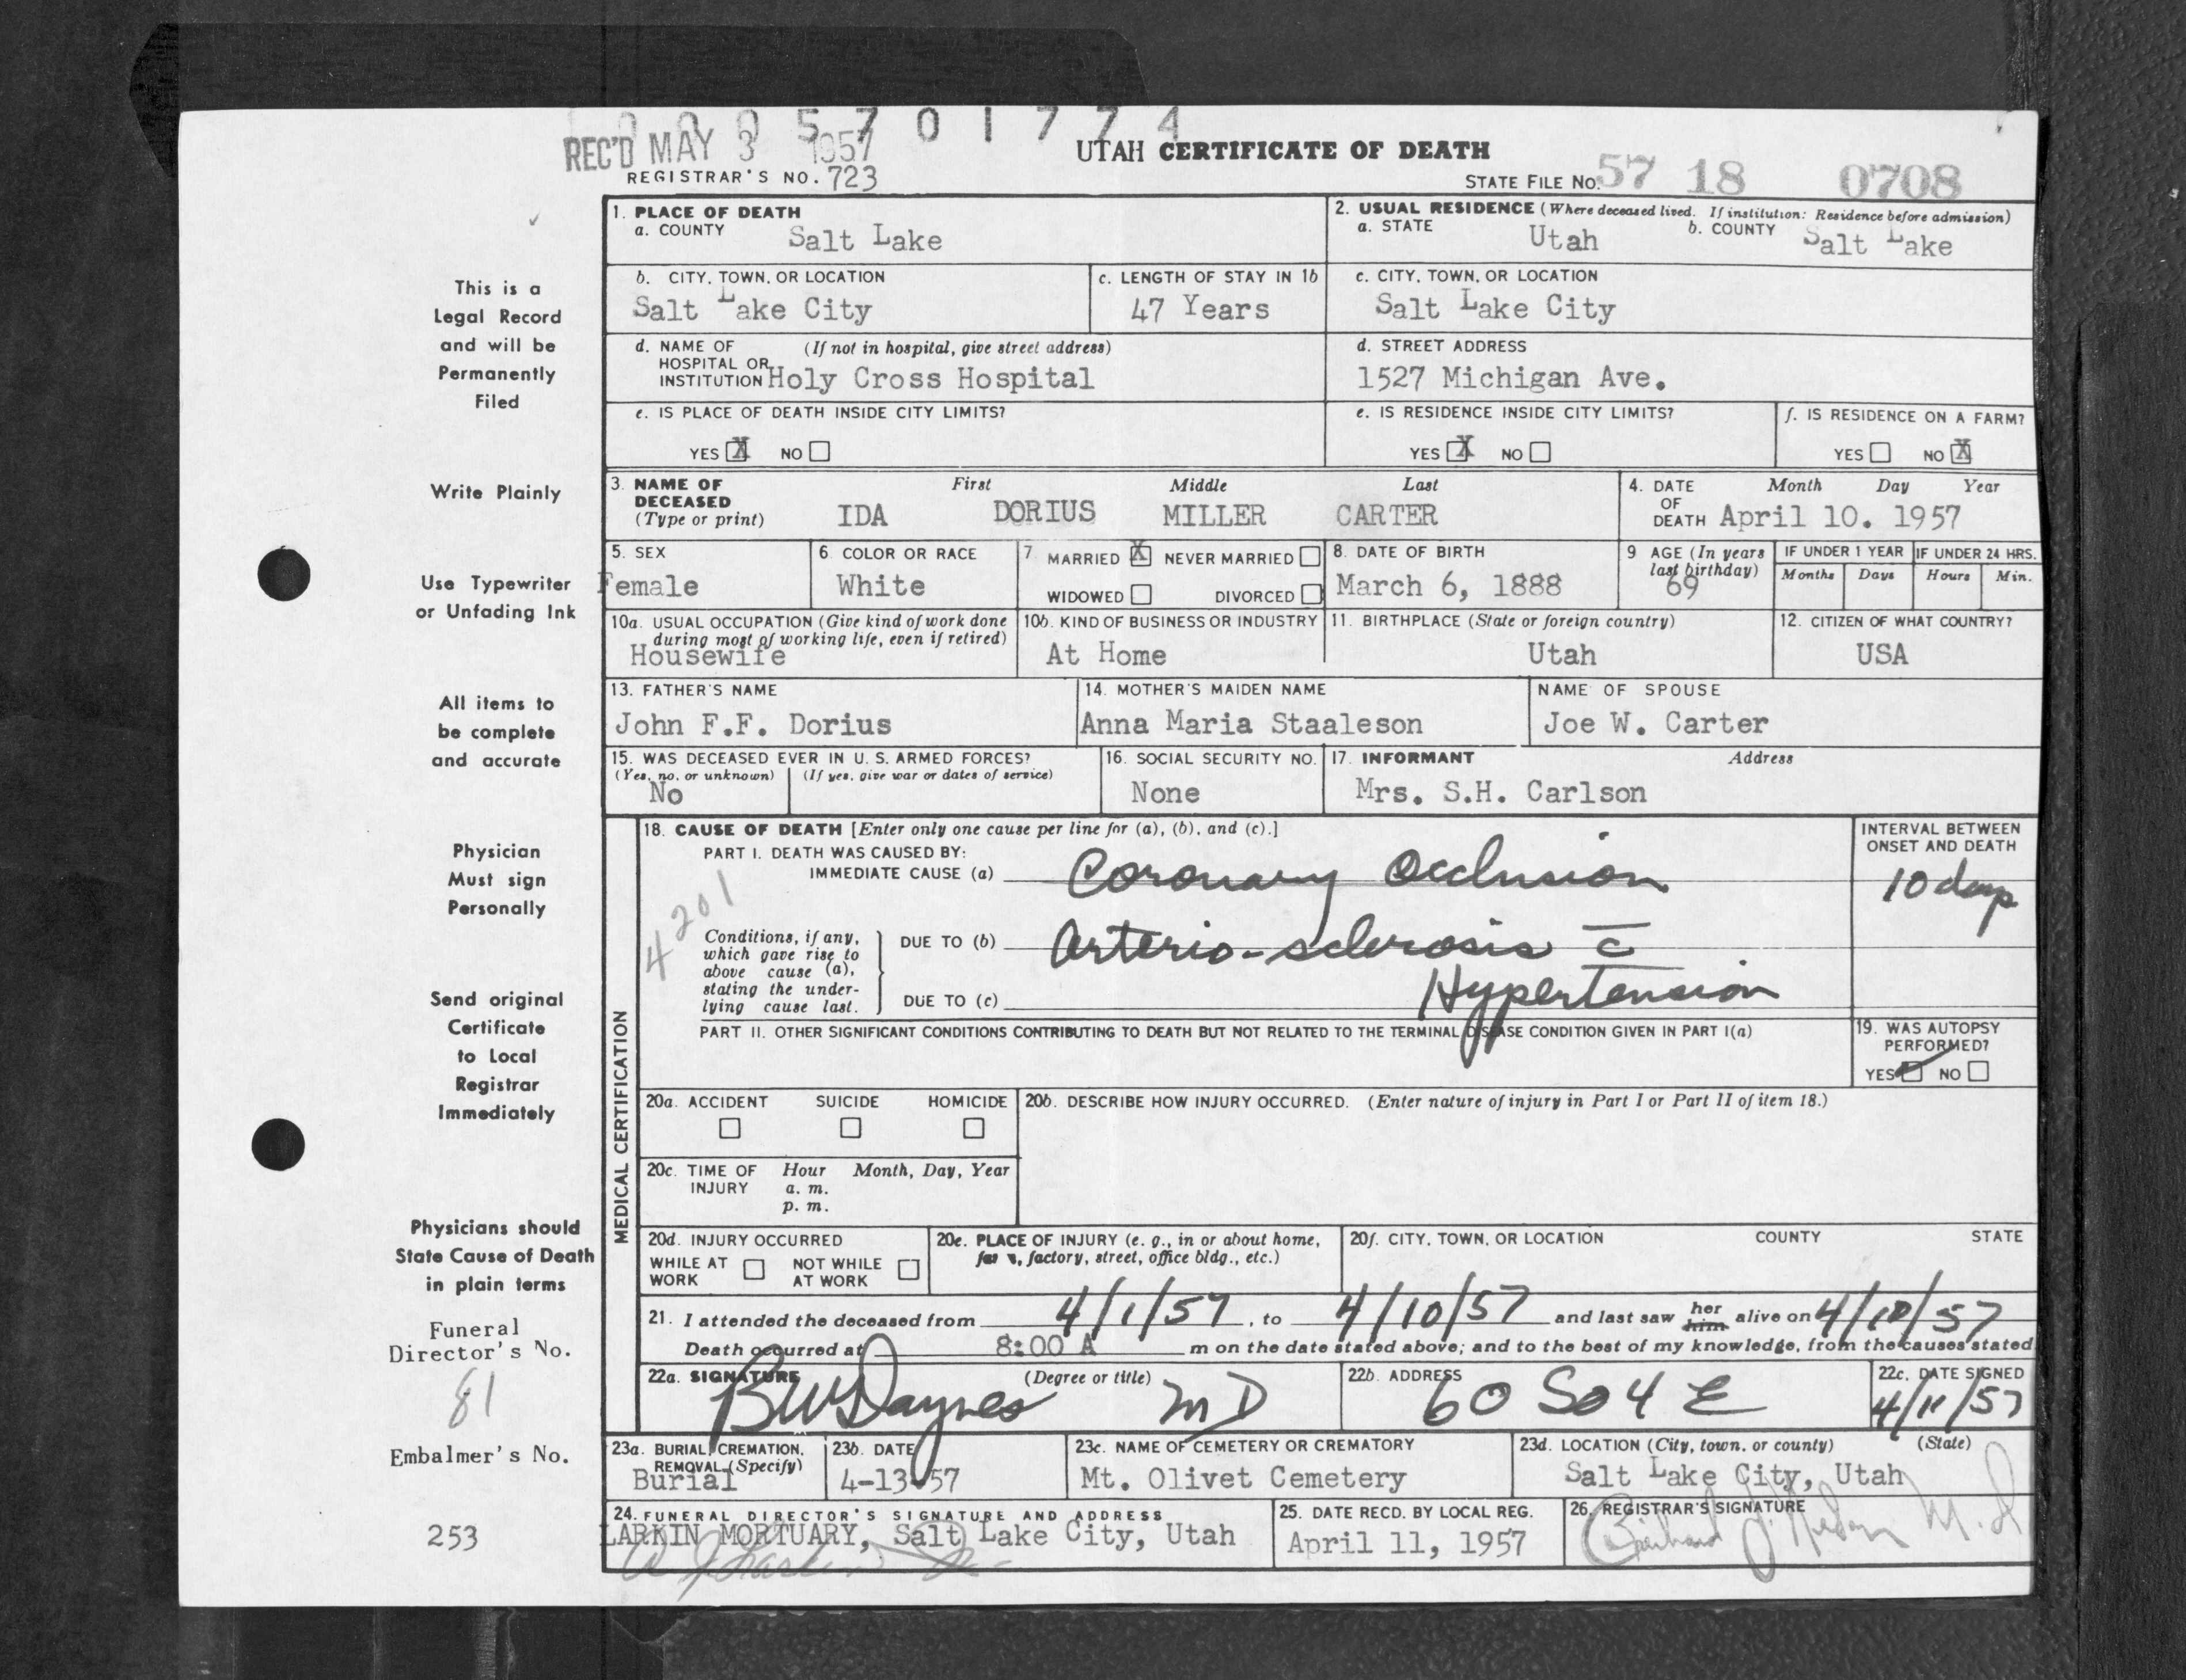 0005701774
REC'D MAY 3 1957
UTAH CERTIFICATE OF DEATH
REGISTRAR'S NO. 723
STATE FILE NO. 57 18 0708
This is a
Legal Record
and will be
Permanently
Filed
Write Plainly
Use Typewriter
or Unfading Ink
All items to
be complete
and accurate
Physician
Must sign
Personally
Send original
Certificate
to Local
Registrar
Immediately
Physicians should
State Cause of Death
in plain terms
Funeral
Director's No.
81
Embalmer's No.
253
1. PLACE OF DEATH
a. COUNTY Salt Lake
2. USUAL RESIDENCE (Where deceased lived. If institution: Residence before admission)
a. STATE Utah b. COUNTY Salt Lake
b. CITY, TOWN, OR LOCATION
Salt Lake City
c. LENGTH OF STAY IN 1b
47 Years
c. CITY, TOWN, OR LOCATION
Salt Lake City
d. NAME OF (If not in hospital, give street address)
HOSPITAL OR
INSTITUTION Holy Cross Hospital
d. STREET ADDRESS
1527 Michigan Ave.
e. IS PLACE OF DEATH INSIDE CITY LIMITS?
YES X NO
e. IS RESIDENCE INSIDE CITY LIMITS?
YES X NO
f. IS RESIDENCE ON A FARM?
YES NO X
3. NAME OF DECEASED (Type or print)
First Middle Last
IDA DORIUS MILLER CARTER
4. DATE OF DEATH Month Day Year
April 10. 1957
5. SEX
Female
6. COLOR OR RACE
White
7. MARRIED X NEVER MARRIED
WIDOWED DIVORCED
8. DATE OF BIRTH
March 6, 1888
9 AGE (In years last birthday)
69
IF UNDER 1 YEAR
Months Days
IF UNDER 24 HRS.
Hours Min.
10a. USUAL OCCUPATION (Give kind of work done
during most of working life, even if retired)
Housewife
10b. KIND OF BUSINESS OR INDUSTRY
At Home
11. BIRTHPLACE (State or foreign country)
Utah
12. CITIZEN OF WHAT COUNTRY?
USA
13. FATHER'S NAME
John F.F. Dorius
14. MOTHER'S MAIDEN NAME
Anna Maria Staaleson
NAME OF SPOUSE
Joe W. Carter
15. WAS DECEASED EVER IN U. S. ARMED FORCES?
(Yes, no, or unknown) (If yes, give war or dates of service)
No
16. SOCIAL SECURITY NO.
None
17. INFORMANT Address
Mrs. S.H. Carlson
MEDICAL CERTIFICATION
18. CAUSE OF DEATH [Enter only one cause per line for (a), (b), and (c).]
PART I. DEATH WAS CAUSED BY:
IMMEDIATE CAUSE (a) Coronary Occlusion
INTERVAL BETWEEN
ONSET AND DEATH
10 days
4201
Conditions, if any,
which gave rise to
above cause (a),
stating the under-
lying cause last.
DUE TO (b) Arterio-sclerosis c̄
DUE TO (c) Hypertension
PART II. OTHER SIGNIFICANT CONDITIONS CONTRIBUTING TO DEATH BUT NOT RELATED TO THE TERMINAL DISEASE CONDITION GIVEN IN PART I(a)
19. WAS AUTOPSY
PERFORMED?
YES NO
20a. ACCIDENT SUICIDE HOMICIDE
20b. DESCRIBE HOW INJURY OCCURRED. (Enter nature of injury in Part I or Part II of item 18.)
20c. TIME OF INJURY
Hour Month, Day, Year
a. m.
p. m.
20d. INJURY OCCURRED
WHILE AT WORK NOT WHILE AT WORK
20e. PLACE OF INJURY (e. g., in or about home,
farm, factory, street, office bldg., etc.)
20f. CITY, TOWN, OR LOCATION COUNTY STATE
21. I attended the deceased from 4/1/57, to 4/10/57 and last saw her him alive on 4/10/57
Death occurred at 8:00 A m on the date stated above; and to the best of my knowledge, from the causes stated
22a. SIGNATURE (Degree or title)
BW Daynes MD
22b. ADDRESS
60 So 4 E
22c. DATE SIGNED
4/11/57
23a. BURIAL, CREMATION,
REMOVAL (Specify)
Burial
23b. DATE
4-13-57
23c. NAME OF CEMETERY OR CREMATORY
Mt. Olivet Cemetery
23d. LOCATION (City, town, or county) (State)
Salt Lake City, Utah
24. FUNERAL DIRECTOR'S SIGNATURE AND ADDRESS
LARKIN MORTUARY, Salt Lake City, Utah
25. DATE RECD. BY LOCAL REG.
April 11, 1957
26. REGISTRAR'S SIGNATURE